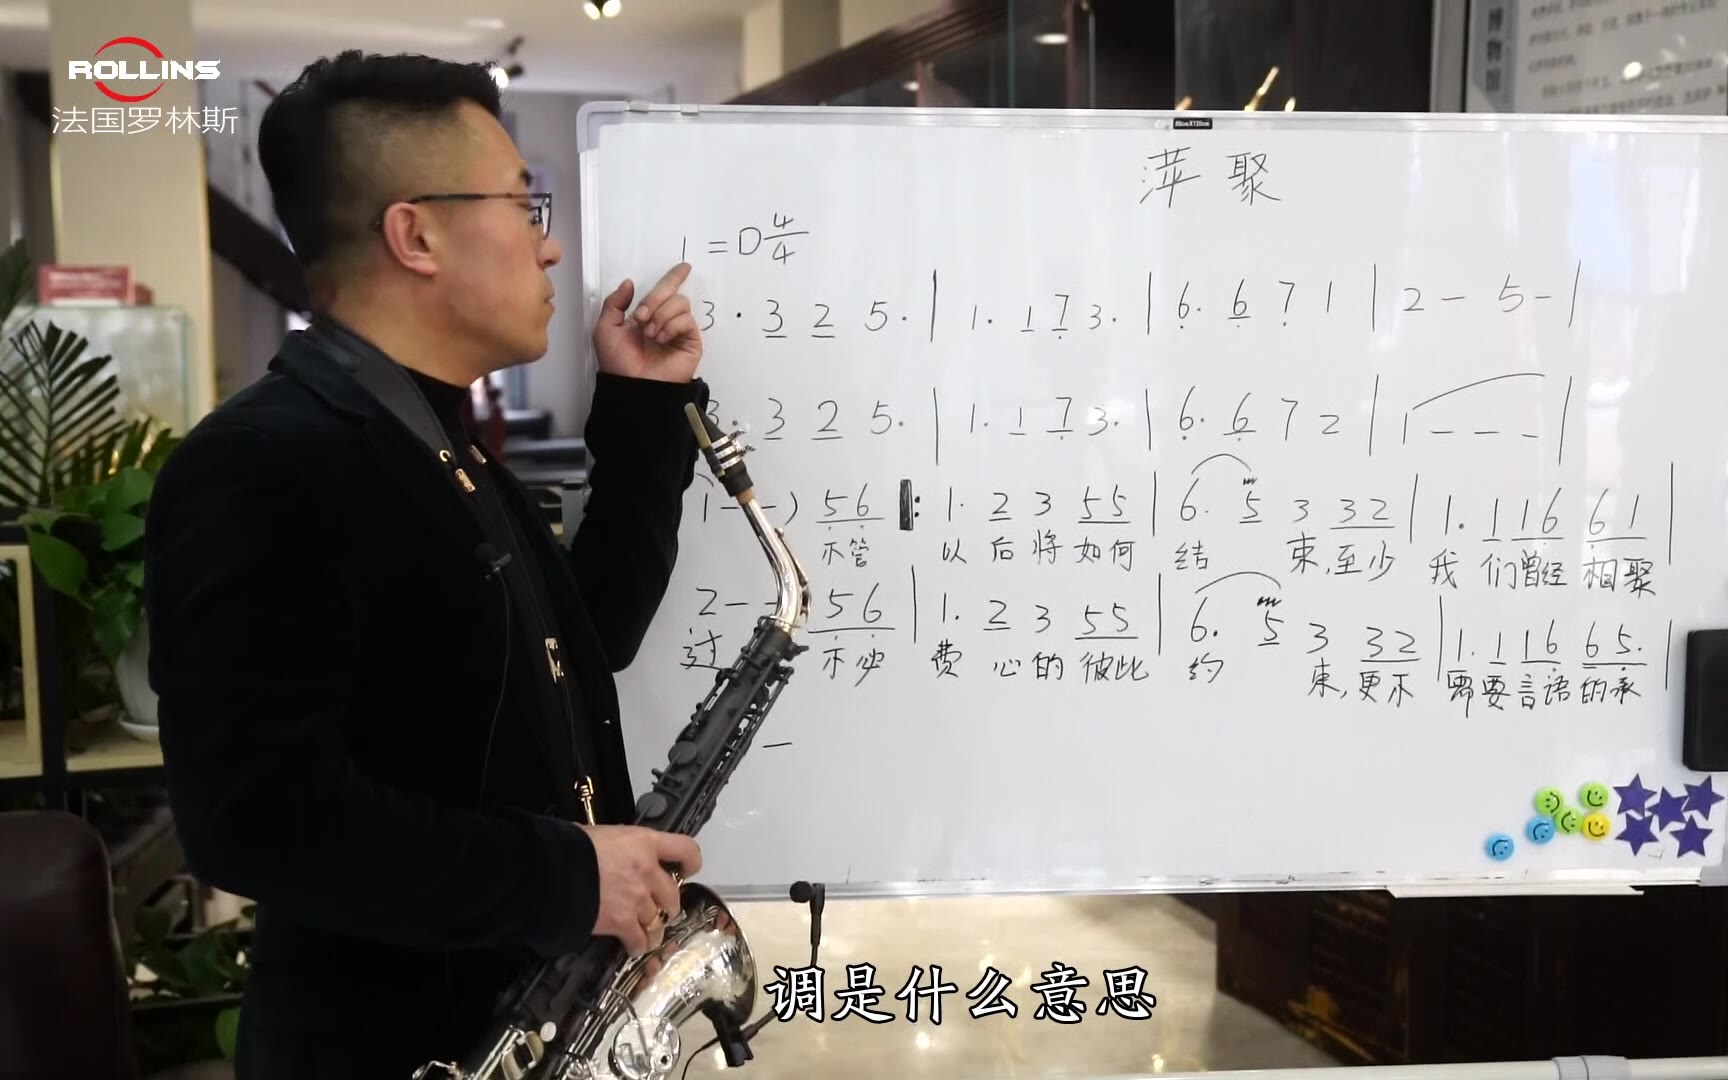 ROLLINS
法国罗林斯
博物馆
萍聚
1=D 4/4
3 · 3 2 5 · | 1 · 1 7 3 · | 6 · 6 7 1 | 2 - 5 - |
3 · 3 2 5 · | 1 · 1 7 3 · | 6 · 6 7 2 | 1 - - - |
1 - - ) 5 6 |: 1 · 2 3 5 5 | 6 · 5 3 3 2 | 1 · 1 1 6 6 1 |
不管 以后将如何 结 束,至少 我们曾经相聚
2 - - 5 6 | 1 · 2 3 5 5 | 6 · 5 3 3 2 | 1 · 1 1 6 6 5 · |
过 不必 费心的彼此 约 束,更不 需要言语的承
-
调是什么意思